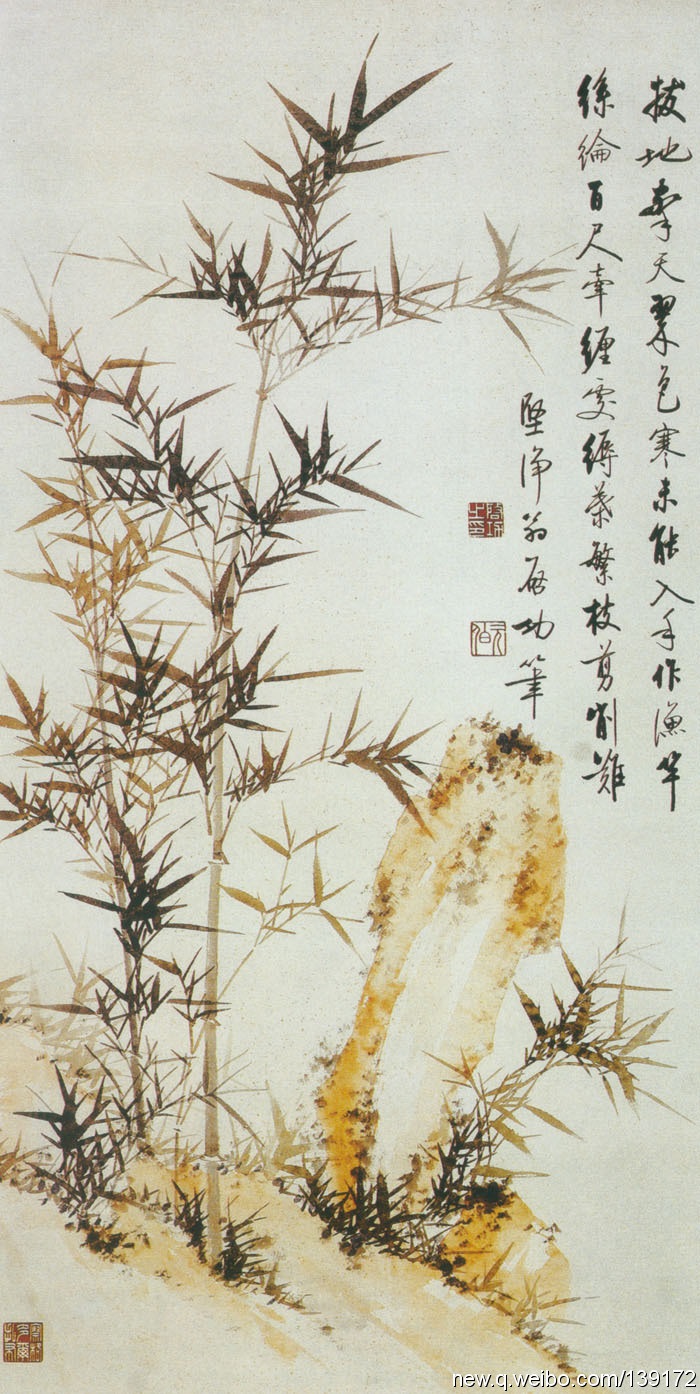 拔地參天翠色寒未能入手作漁竿
絲綸百尺牽纏處縟葉繁枝剪削難
堅淨翁啟功筆
啟功之印
元白
new.q.weibo.com/139172